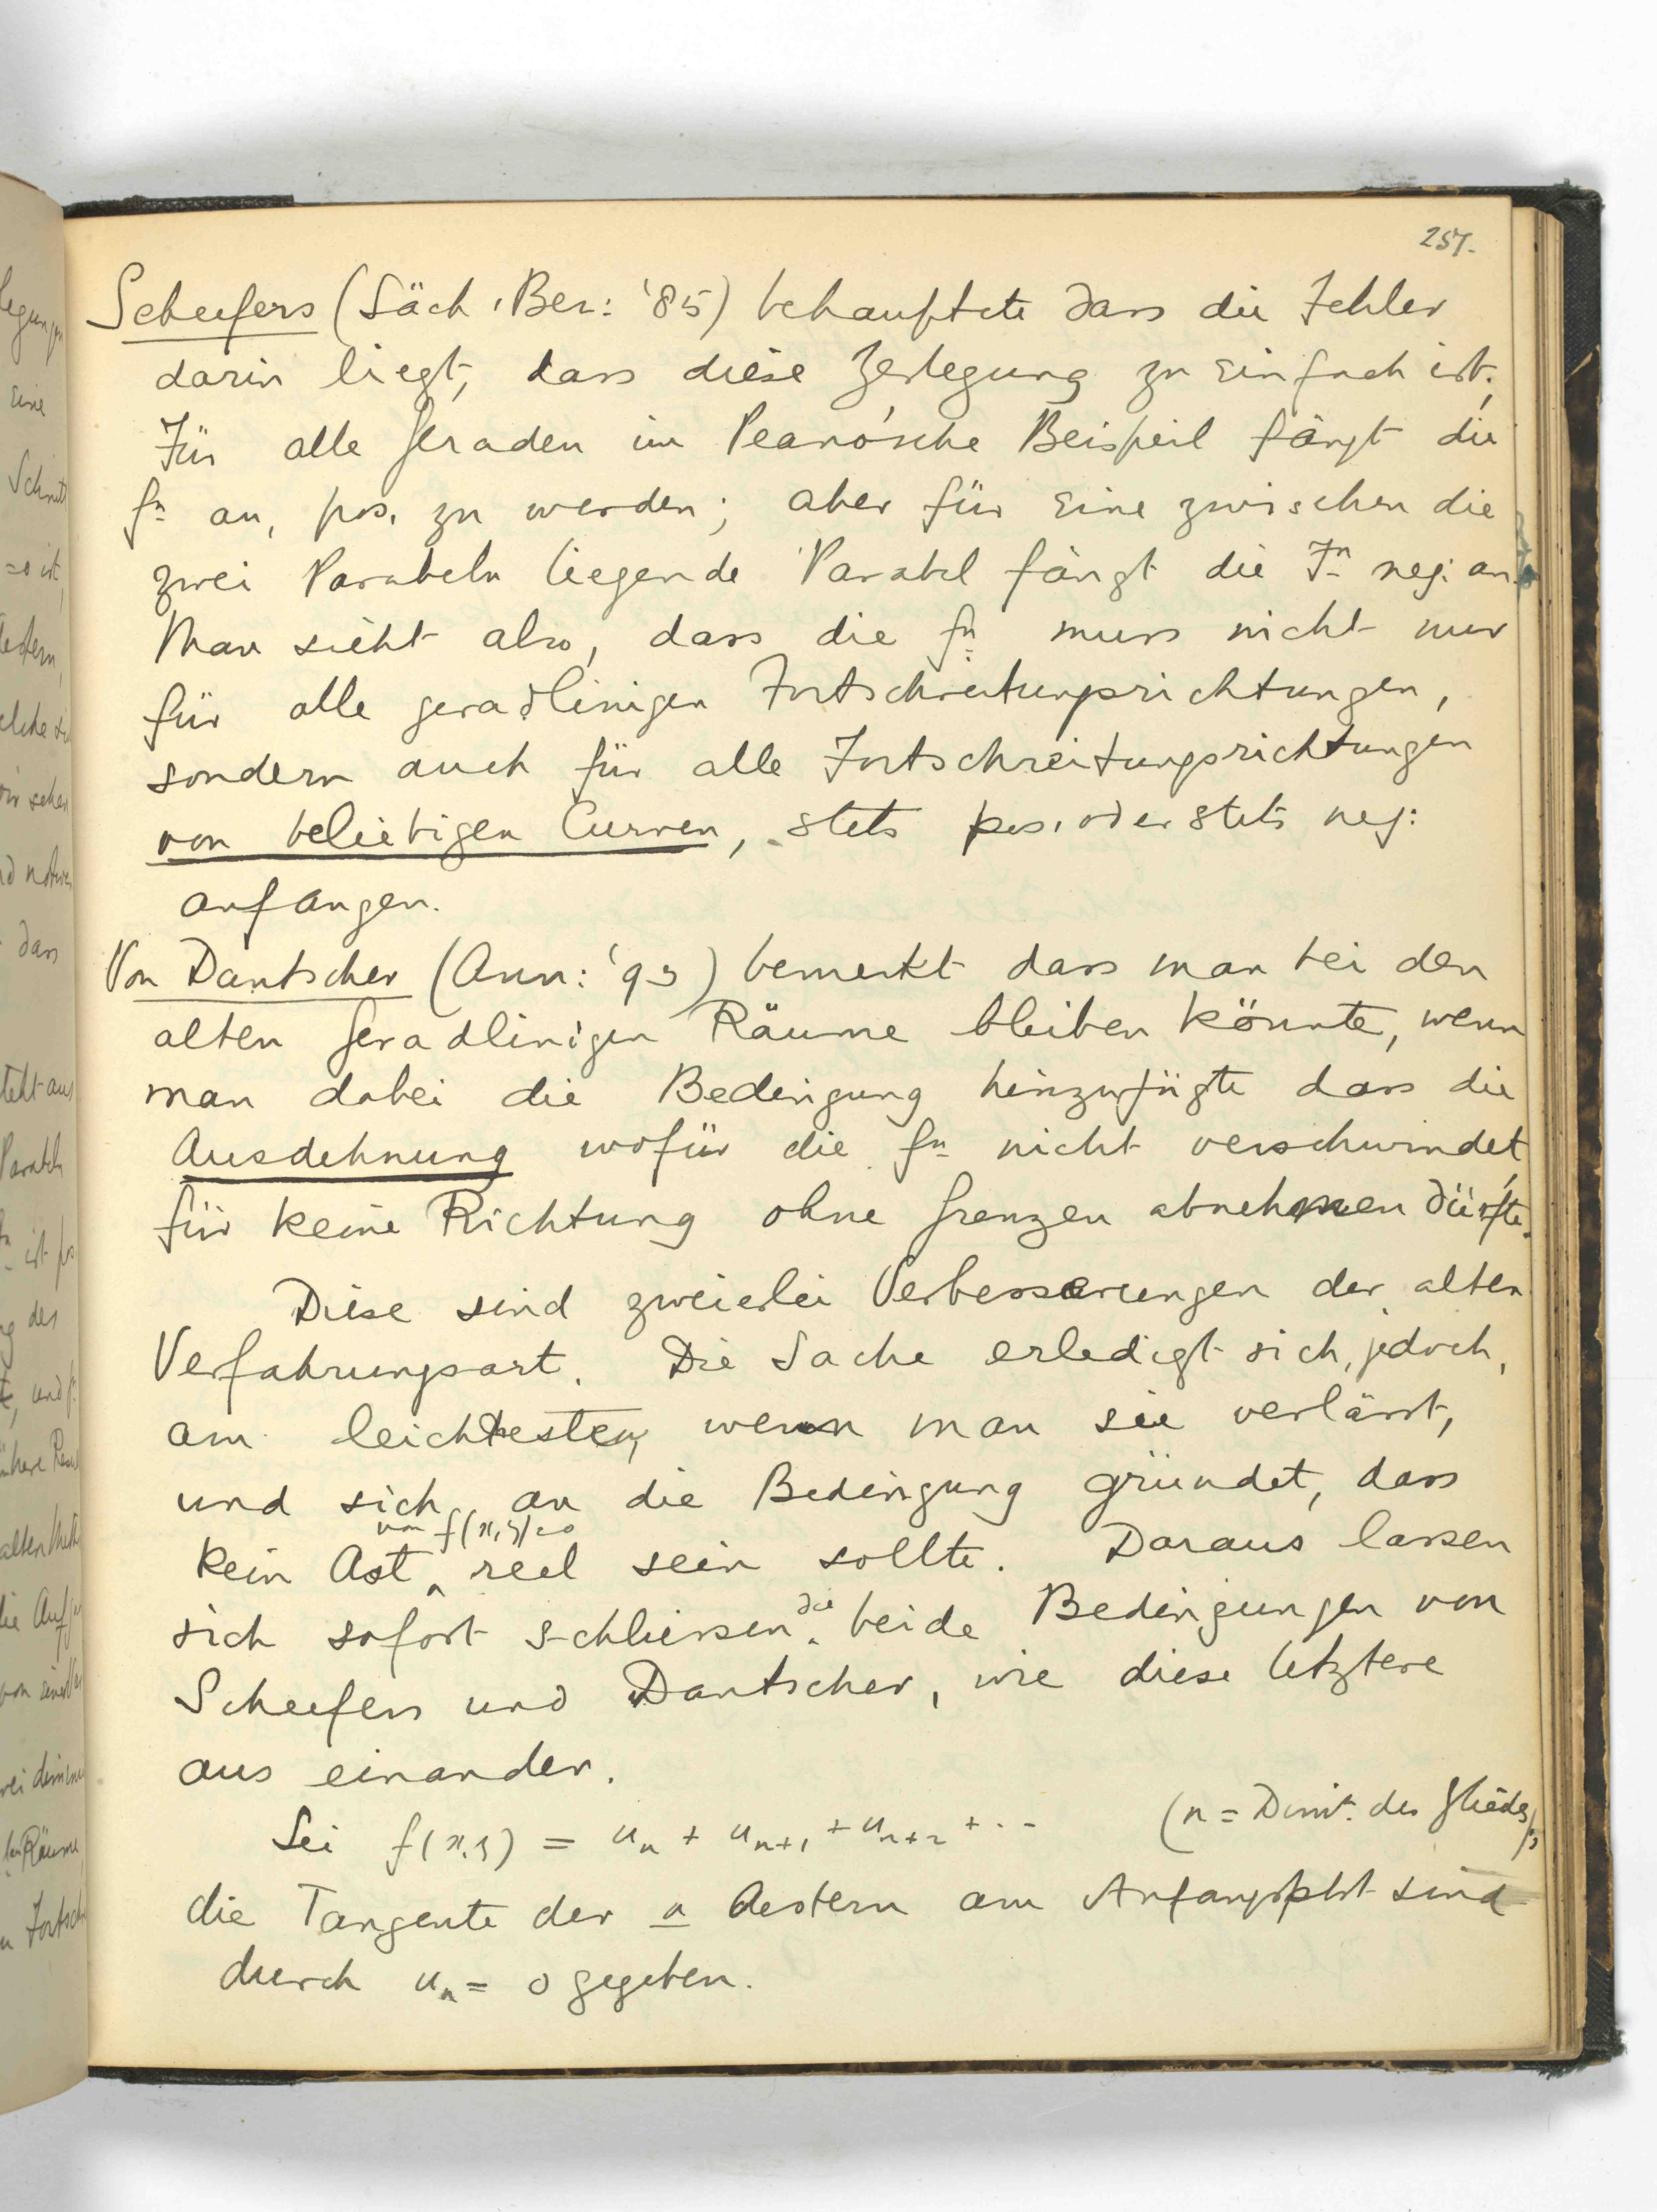 257.
Scheefers (Säch. Ber: '85) behauptete dass die Fehler
darin liegt, dass diese Zerlegung zu einfach ist;
Für alle Geraden im Peano'sche Beispeil fängt die
fn an, pos. zu werden; aber für eine zwischen die
zwei Parabeln liegende Parabel fängt die Fn neg. an.
Man sieht also, dass die fn muss nicht nur
für alle geradlinigen Fortschreitungsrichtungen,
sondern auch für alle Fortschreitungsrichtungen
von beliebigen Curven, stets pos. oder stets neg:
anfangen.
Von Dantscher (Ann: '93) bemerkt dass man bei den
alten geradlinigen Räume bleiben könnte, wenn
man dabei die Bedingung hinzufügte dass die
Ausdehnung wofür die fn nicht verschwindet,
für keine Richtung ohne Grenzen abnehmen dürfte.
Diese sind zweierlei Verbesserungen der alten
Verfahrungsart. Die Sache erledigt sich, jedoch,
am leichtesten, wenn man sie verlässt,
und sich an die Bedingung gründet, dass
von f(x,y)=0
kein Ast reel sein sollte. Daraus lassen
sich sofort schliessen die beide Bedingungen von
Scheefers und Dantscher, wie diese letztere
aus einander.
Sei f(x,y) = u_n + u_{n+1} + u_{n+2} + ... (n = Dimt. des Gliedes);
die Tangente der n Aestern am Anfangspkt sind
durch u_n = 0 gegeben.